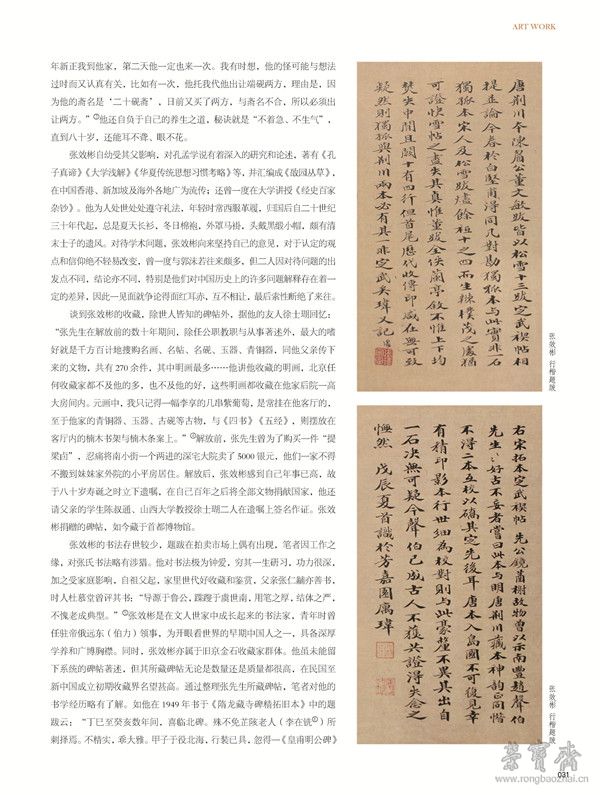 ART WORK
年新正我到他家，第二天他一定也来一次。我有时想，他的怪可能与想法
过时而又认真有关，比如有一次，他托我代他出让端砚两方，理由是，因
为他的斋名是‘二十砚斋’，日前又买了两方，与斋名不合，所以必须出
让两方。”他还自负于自己的养生之道，秘诀就是“不着急、不生气”，
直到八十岁，还能耳不聋、眼不花。
张效彬自幼受其父影响，对孔孟学说有着深入的研究和论述，著有《孔
子真谛》《大学浅解》《华夏传统思想习惯考略》等，并汇编成《敀园丛草》，
在中国香港、新加坡及海外各地广为流传；还曾一度在大学讲授《经史百家
杂钞》。他为人处世处处遵守礼法，年轻时常西服革履，归国后自二十世纪
三十年代起，总是夏天长衫，冬日棉袍，外罩马褂，头戴黑缎小帽，颇有清
末士子的遗风。对待学术问题，张效彬向来坚持自己的意见，对于认定的观
点和信仰绝不轻易改变，曾一度与郭沫若往来颇多，但二人因对待问题的出
发点不同，结论亦不同，特别是他们对中国历史上的许多问题解释存在着一
定的差异，因此一见面就争论得面红耳赤，互不相让，最后索性断绝了来往。
谈到张效彬的收藏，除世人皆知的碑帖外，据他的友人徐士瑚回忆：
“张先生在解放前的数十年期间，除任公职教职与从事著述外，最大的嗜
好就是千方百计地搜购名画、名帖、名砚、玉器、青铜器，同他父亲传下
来的文物，共有 270 余件，其中明画最多……他讲他收藏的明画，北京任
何收藏家都不及他的多，也不及他的好，这些明画都收藏在他家后院一高
大房间内。元画中，我只记得一幅李享的几串紫葡萄，是常挂在他客厅的，
至于他家的青铜器、玉器、古砚等古物，与《四书》《五经》，则摆放在
客厅内的楠木书架与楠木条案上。”解放前，张先生曾为了购买一件“提
梁卣”，忍痛将南小街一个两进的深宅大院卖了 5000 银元，他们一家不得
不搬到妹妹家外院的小平房居住。解放后，张效彬感到自己年事已高，故
于八十岁寿诞之时立下遗嘱，在自己百年之后将全部文物捐献国家，他还
请父亲的学生陈叔通、山西大学教授徐士瑚二人在遗嘱上签名作证。张效
彬捐赠的碑帖，如今藏于首都博物馆。
张效彬的书法存世较少，题跋在拍卖市场上偶有出现，笔者因工作之
缘，对张氏书法略有涉猎。他对书法极为钟爱，穷其一生研习，功力很深，
加之受家庭影响，自祖父起，家里世代好收藏和鉴赏，父亲张仁黼亦善书，
时人杜慕堂曾评其书：“导源于鲁公，蹀躞于虞世南，用笔之厚，结体之严，
不愧老成典型。”张效彬是在文人世家中成长起来的书法家，青年时曾
任驻帝俄远东（伯力）领事，为开眼看世界的早期中国人之一，具备深厚
学养和广博胸襟。同时，张效彬亦属于旧京金石收藏家群体。他虽未能留
下系统的碑帖著述，但其所藏碑帖无论是数量还是质量都很高，在民国至
新中国成立初期收藏界名望甚高。通过整理张先生所藏碑帖，笔者对他的
书学经历略有了解。如他在 1949 年书于《隋龙藏寺碑精拓旧本》中的题
跋云：“丁巳至癸亥数年间，喜临北碑。殊不免芷陔老人（李在铣）所
刺择焉。不精实，乖大雅。甲子于役北海，行装已具，忽得—《皇甫明公碑》
唐荆川本陳眉公董文敏跋皆以松雪十三跋定武禊帖相
提並論今春於白堅甫得同几對勘獨孤本與此實非一石
獨孤本宋人及松雪跋燼餘祖十之四而生辣樸茂之處猶
可證快雪帖之盡失其真惟董跋全佚蘭亭敘不惟上下均
焚失中間且闕十有四行但首尾歷代收傳印咸在無可致
疑然則獨孤與荊川兩本必有其一非定武矣瑋又記
张效彬 行楷题跋
右宋拓本定武禊帖 先公鏡菡榭故物曾以示南豐趙聲伯
先生好古不妄者嘗曰此本與明唐荊川藏本神韵正同惜
不得二本互校以确其定先後耳 唐本入島國不可復見幸
有精印影本行世細為校對則與此豪釐不異其出自
一石决無可疑今聲伯已成古人不獲共證得失念之
憮然 戊辰夏首識於芳嘉園属瑋
张效彬 行楷题跋
榮寶齋
www.rongbaozhai.cn
031